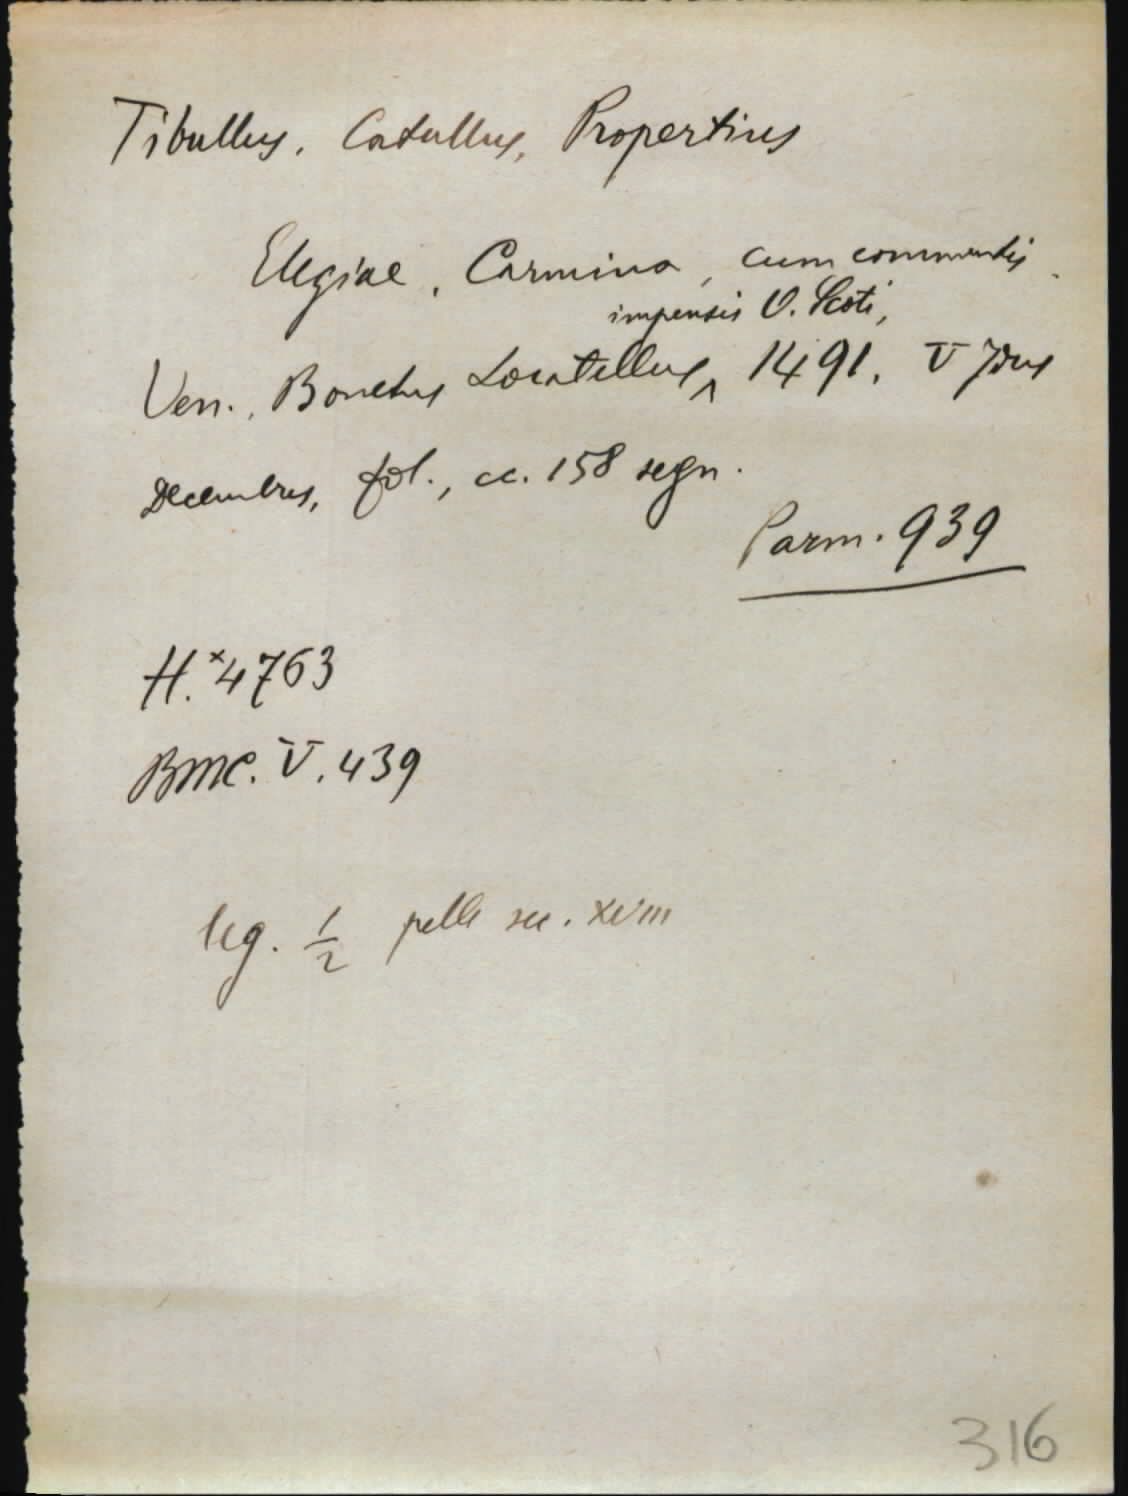 Tibullus, Catullus, Propertius
Elegiae, Carmina, cum commentis
impensis O. Scoti,
Ven., Bonetus Locatellus, ^ 1491, V Idus
Decembres, fol., cc. 158 segn.
Parm. 939
H.*4763
BMC. V. 439
leg. 1/2 pelle sec. XVIII
316